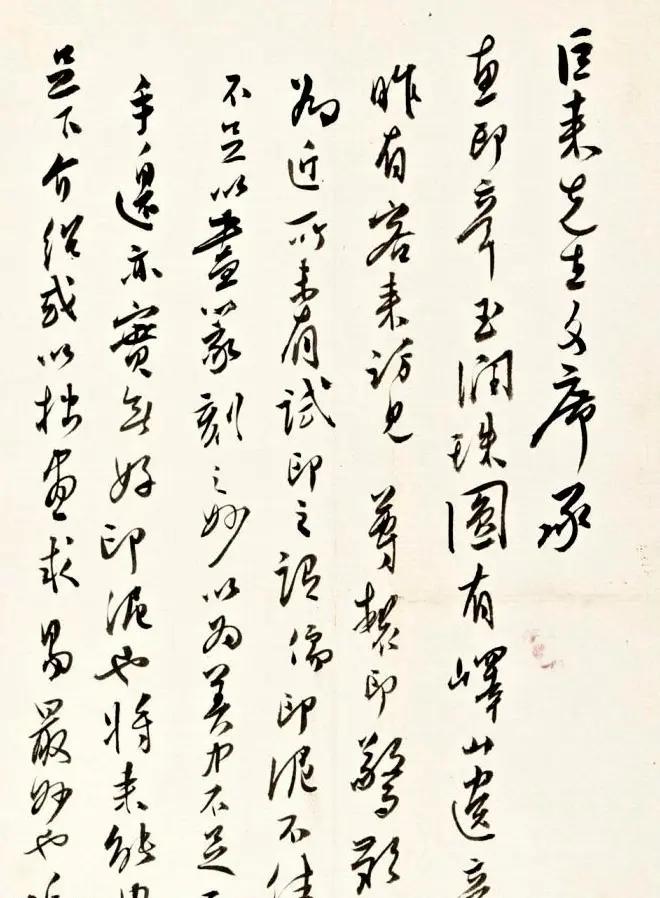 巨來先生文席承
惠印章玉润珠圓有嶧山遺意
昨有客来訪見尊製印驚歎
為近所未有試印之謂僞印泥不佳
不足以盡篆刻之妙以為美中不足
手邊亦實無好印泥也将来能由
足下介绍或以拙畫求易最妙也